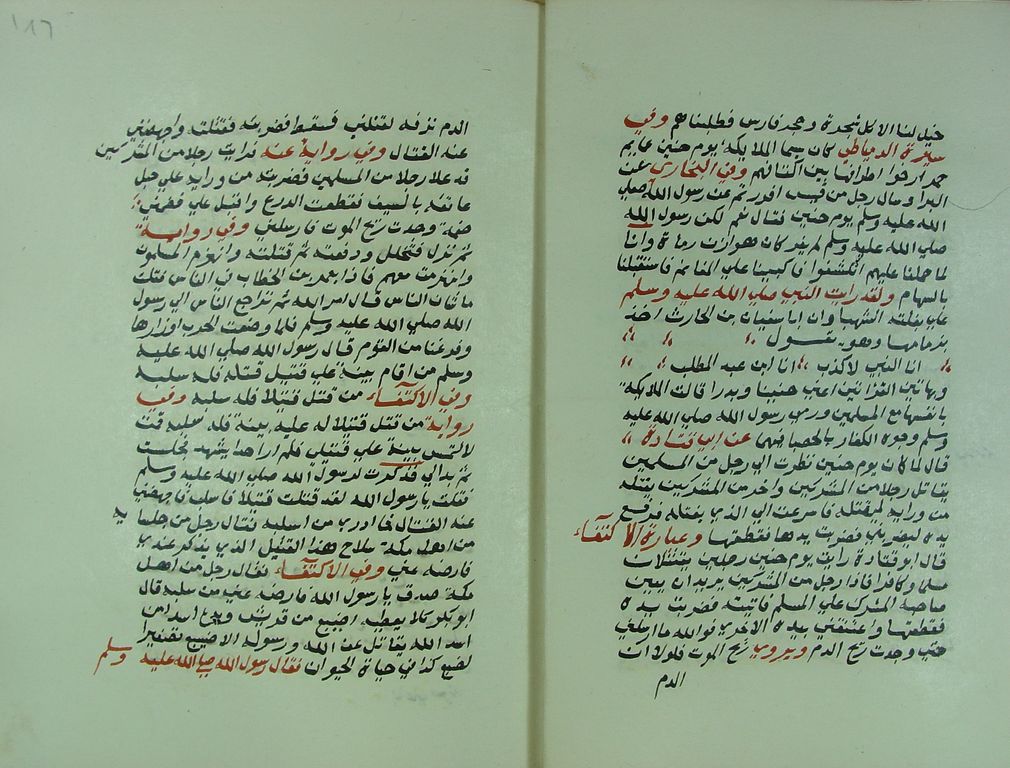 خيل لنا الا كل نجدة وبجد فارس فطلبناهم وفي
سيرة الدمياطي كان سيما الملايكة يوم حنين عمايم
حمر ارخوا اطرافها بين اكتافهم وفي البخاري عن
البرا وسال رجل من قيس افررتم عن رسول الله صلي
الله عليه وسلم يوم حنين فقال نعم لكن رسول الله
صلي الله عليه وسلم لم يفر كان هوازن رماة وانا
لما حملنا عليهم انكشفوا فاكببنا علي الغنايم فاستقبلنا
بالسهام ولقد رايت النبي صلي الله عليه وسلم
علي بغلته الشهبا وان ابا سفيان بن الحارث اخذ
بزمامها وهو يقول
انا النبي لا كذب انا ابن عبد المطلب
وبهاتين الغزاتين اعني حنينا وبدرا قاتلت الملايكة
بانفسها مع المسلمين ورمي رسول الله صلي الله عليه
وسلم وجوه الكفار بالحصبا فيهما عن ابي قتادة
قال لما كان يوم حنين نظرت الي رجل من المسلمين
يقاتل رجلا من المشركين واخر من المشركين يختله
من ورايه ليقتله فاسرعت الي الذي يختله فرفع
يده ليضربني فضربت يدها فقطعتها وعبارة الاكتفاء
قال ابو قتادة رايت يوم حنين رجلين يقتتلان
مسلما وكافرا فاذا رجل من المشركين يريد ان يعين
صاحبه المشرك علي المسلم فاتيته فضربت يده
فقطعتها واعتنقني بيده الاخري فوالله ما ارسلني
حتي وجدت ريح الدم ويروي ريح الموت فلولا ان
الدم
١٨٦
الدم نزفه لقتلني فسقط فضربته فقتلته واجهضني
عنه القتال وفي رواية عنه فرايت رجلا من المشركين
قد علا رجلا من المسلمين فضربته من ورايه علي حبل
عاتقه بالسيف فقطعت الدرع واقبل علي فضمني
ضمة وجدت ريح الموت فارسلني وفي رواية
ثم نزل فتحلل ودفعته ثم قتلته وانهزم المسلمون
وانهزمت معهم فاذا بعمر بن الخطاب في الناس فقلت
ما شان الناس قال امر الله ثم تراجع الناس الي رسول
الله صلي الله عليه وسلم فلما وضعت الحرب اوزارها
وفرغنا من القوم قال رسول الله صلي الله عليه
وسلم من اقام بينة علي قتيل قتله فله سلبه
وفي الاكتفاء من قتل قتيلا فله سلبه وفي
رواية من قتل قتيلا له عليه بينة فله سلبه فقمت
لالتمس بينة علي قتيلي فلم ار احدا يشهد فجلست
ثم بدا لي فذكرت لرسول الله صلي الله عليه وسلم
فقلت يا رسول الله لقد قتلت قتيلا فاجهضني
عنه القتال فما ادري من اسلبه فقال رجل من جلسايه
من اهل مكة سلاح هذا القتيل الذي يذكر عندي
فارضه عني وفي الاكتفاء فقال رجل من اهل
مكة صدق يا رسول الله فارضه عني من سلبه قال
ابو بكر كلا يعطه اضيبع من قريش ويدع اسدا من
اسد الله يقاتل عن الله ورسوله الاضيبع تصغير
لضبع كذا في حياة الحيوان فقال رسول الله صلي الله عليه وسلم